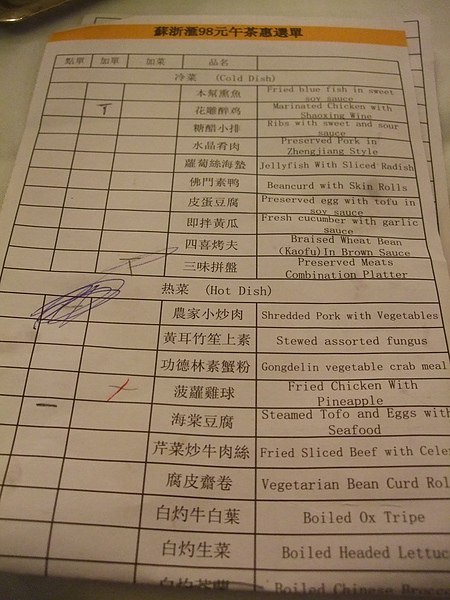 蘇浙滙98元午茶惠選單
點單 加單 加菜 品名
冷菜 (Cold Dish)
本幫熏魚 Fried blue fish in sweet soy sauce
花雕醉鸡 Marinated Chicken with Shaoxing Wine
糖醋小排 Ribs with sweet and sour sauce
水晶肴肉 Preserved Pork in Zhengjiang Style
蘿蔔絲海蟄 Jellyfish With Sliced Radish
佛門素鸭 Beancurd with Skin Rolls
皮蛋豆腐 Preserved egg with tofu in soy sauce
即拌黃瓜 Fresh cucumber with garlic sauce
四喜烤夫 Braised Wheat Bean (Kaofu)In Brown Sauce
三味拼盤 Preserved Meats Combination Platter
热菜 (Hot Dish)
農家小炒肉 Shredded Pork with Vegetables
黃耳竹笙上素 Stewed assorted fungus
功德林素蟹粉 Gongdelin vegetable crab meal
菠蘿雞球 Fried Chicken With Pineapple
海棠豆腐 Steamed Tofo and Eggs with Seafood
芹菜炒牛肉絲 Fried Sliced Beef with Cele
腐皮齋卷 Vegetarian Bean Curd Rol
白灼牛白葉 Boiled Ox Tripe
白灼生菜 Boiled Headed Lettuc
白灼芥蘭 Boiled Chinese Brocco